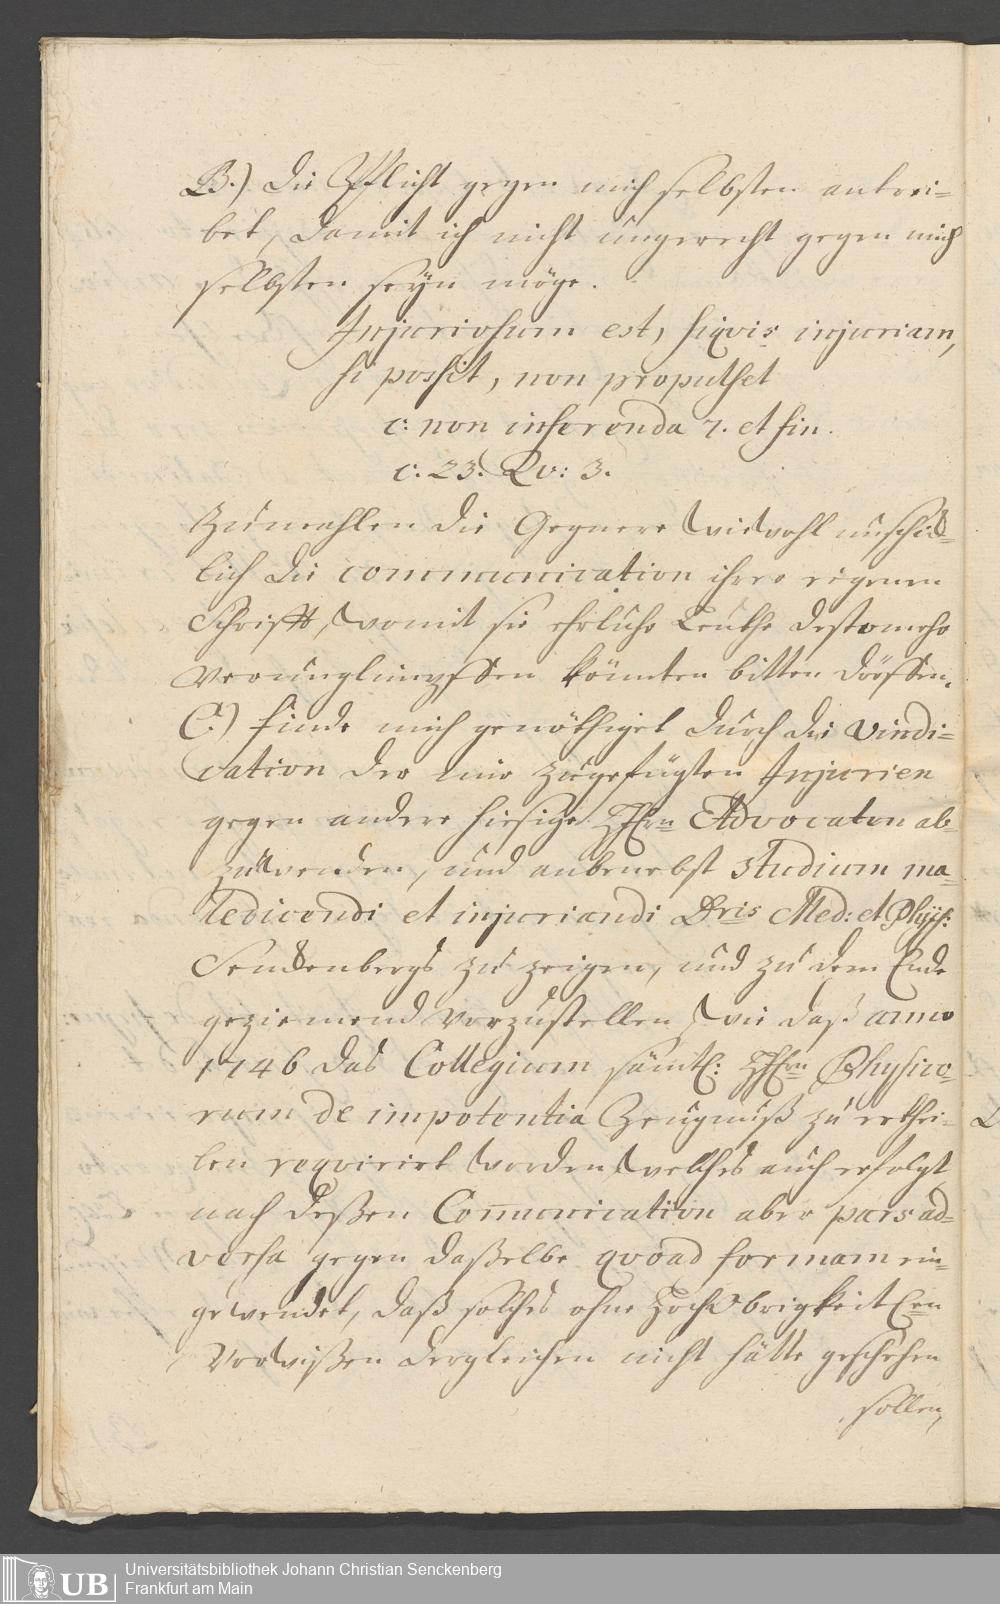 B.) die Pflicht gegen mich selbsten antrei=
bet, damit ich nicht ungerecht gegen mich
selbsten seyn möge.
Injuriosum est, siqvis injuriam,
si possit, non propulset
c: non inferenda 7. et fin.
c. 23. Qv: 3.
Zumahlen die Gegnere wiewohl unschied=
lich die communication ihrer eigenen
Schrifft, womit sie ehrliche Leuthe destomehr
verunglimpffen könnten bitten dörffen.
C.) finde mich genöthiget durch die vindi=
cation der mir zugefügten Injurien
gegen andere hiesige HHrn Advocaten ab=
zuwenden, und anbenebst studium ma=
ledicendi et injuriandi Dris Med: et Phys:
Senckenbergs zu zeigen, und zu dem Ende
geziemend vorzustellen, wie daß anno
1746 das Collegium sämtl: HHrn Physico=
rum de impotentia Zeugnuß zu erthei=
len reqvirirt worden, welches auch erfolgt
nach deßen Communication aber pars ad=
versa gegen daßelbe qvoad formam ein=
gewendet, daß solches ohne HochObrigkeitl
Vorwißen dergleichen nicht hätte geschehen
sollen,
Universitätsbibliothek Johann Christian Senckenberg
Frankfurt am Main
UB